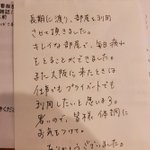 長期に渡り、部屋を利用
させて頂きました。
キレイな部屋で、毎日病い
をとることができました。
また大阪に来たときは
仕事かプライベートでも
利用したいと思います。
寒いので、皆様、体調に
お気をつけて。
ありがとうございました。